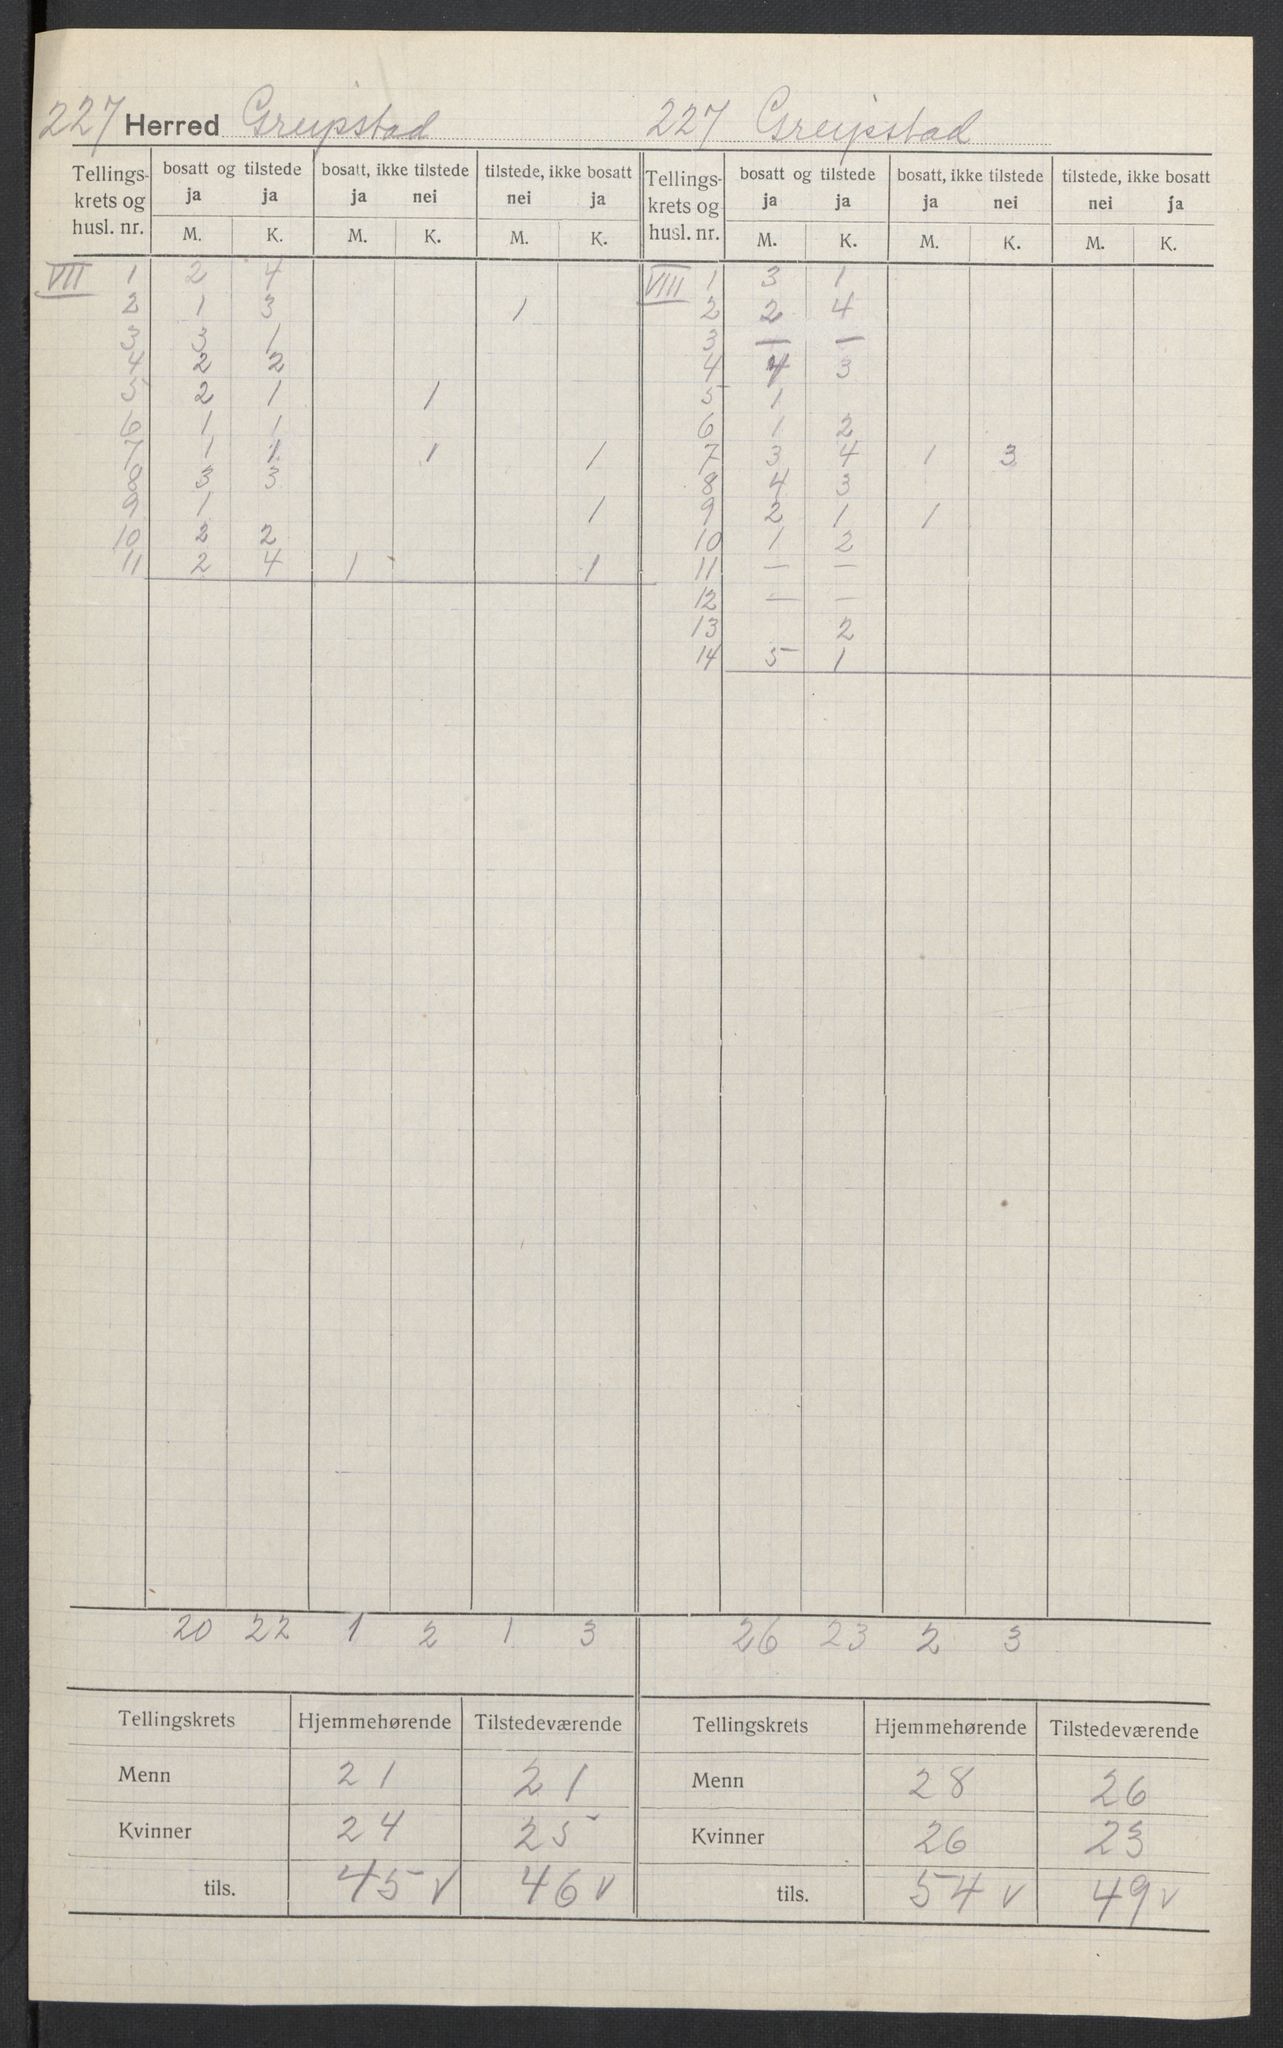 227 Herred Greipstad 227 Greipstad
Tellings- krets og husl. nr. | bosatt og tilstede | bosatt, ikke tilstede | tilstede, ikke bosatt | Tellings- krets og husl. nr. | bosatt og tilstede | bosatt, ikke tilstede | tilstede, ikke bosatt
ja ja | ja nei | nei ja | ja ja | ja nei | nei ja
M. K. | M. K. | M. K. | M. K. | M. K. | M. K.
VII 1 | 2 | 4 | | | | | VIII 1 | 3 | 1
2 | 1 | 3 | | | 1 | | 2 | 2 | 4
3 | 3 | 1 | | | | | 3 | — | —
4 | 2 | 2 | | | | | 4 | 4 | 3
5 | 2 | 1 | | 1 | | | 5 | 1
6 | 1 | 1 | | | | | 6 | 1 | 2
7 | 1 | 1 | | 1 | | 1 | 7 | 3 | 4 | 1 | 3
8 | 3 | 3 | | | | | 8 | 4 | 3
9 | 1 | | | | | 1 | 9 | 2 | 1 | 1
10 | 2 | 2 | | | | | 10 | 1 | 2
11 | 2 | 4 | 1 | | | 1 | 11 | — | —
12 | — | —
13 | | 2
14 | 5 | 1
20 22 1 2 1 3 | 26 23 2 3
Tellingskrets | Hjemmehørende | Tilstedeværende | Tellingskrets | Hjemmehørende | Tilstedeværende
Menn | 21 | 21 | Menn | 28 | 26
Kvinner | 24 | 25 | Kvinner | 26 | 23
tils. | 45 v | 46 v | tils. | 54 v | 49 v